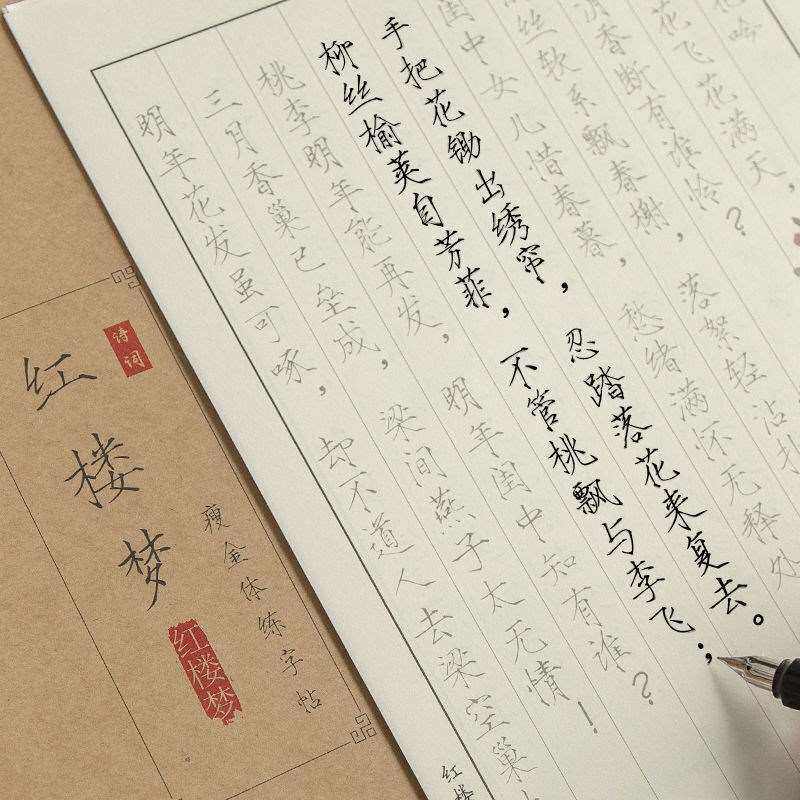 花吟
花飞花满天，
消香断有谁怜？
丝软系飘春榭，落絮轻沾扑
闺中女儿惜春暮，愁绪满怀无释处
手把花锄出绣帘，忍踏落花来复去。
柳丝榆荚自芳菲，不管桃飘与李飞；
桃李明年能再发，明年闺中知有谁？
三月香巢已垒成，梁间燕子太无情！
明年花发虽可啄，却不道人去梁空巢
红楼
诗词
红楼梦
瘦金体练字帖
红楼梦